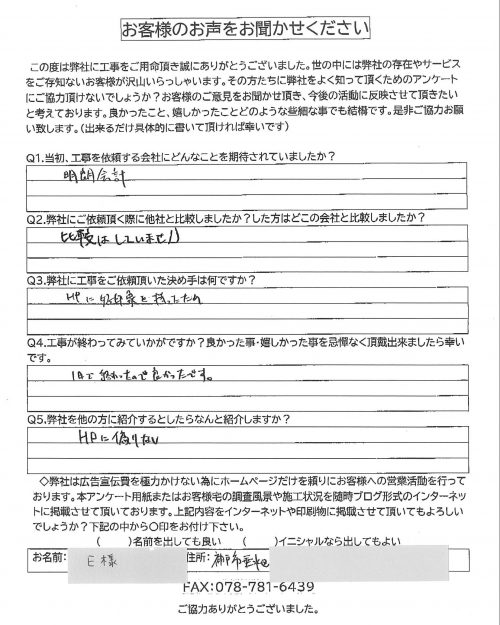 お客様のお声をお聞かせください
この度は弊社に工事をご用命頂き誠にありがとうございました。世の中には弊社の存在やサービス
をご存知ないお客様が沢山いらっしゃいます。その方たちに弊社をよく知って頂くためのアンケート
にご協力頂けないでしょうか？お客様のご意見をお聞かせ頂き、今後の活動に反映させて頂きたい
と考えております。良かったこと、嬉しかったことどのような些細な事でも結構です。是非ご協力お願
い致します。（出来るだけ具体的に書いて頂ければ幸いです）
Q1.当初、工事を依頼する会社にどんなことを期待されていましたか？
明朗会計
Q2.弊社にご依頼頂く際に他社と比較しましたか？した方はどこの会社と比較しましたか？
比較はしていません
Q3.弊社に工事をご依頼頂いた決め手は何ですか？
HPに好印象を持ったため
Q4.工事が終わってみていかがですか？良かった事・嬉しかった事を忌憚なく頂戴出来ましたら幸い
です。
1日で終わったので良かったです。
Q5.弊社を他の方に紹介するとしたらなんと紹介しますか？
HPに偽りない
◇弊社は広告宣伝費を極力かけない為にホームページだけを頼りにお客様への営業活動を行って
おります。本アンケート用紙またはお客様宅の調査風景や施工状況を随時ブログ形式のインターネッ
トに掲載させて頂いております。上記内容をインターネットや印刷物に掲載させて頂いてもよろしい
でしょうか？下記の中から○印をお付け下さい。
（　　）名前を出しても良い　（　　）イニシャルなら出してもよい
お名前： E様 住所：
FAX:078-781-6439
ご協力ありがとうございました。